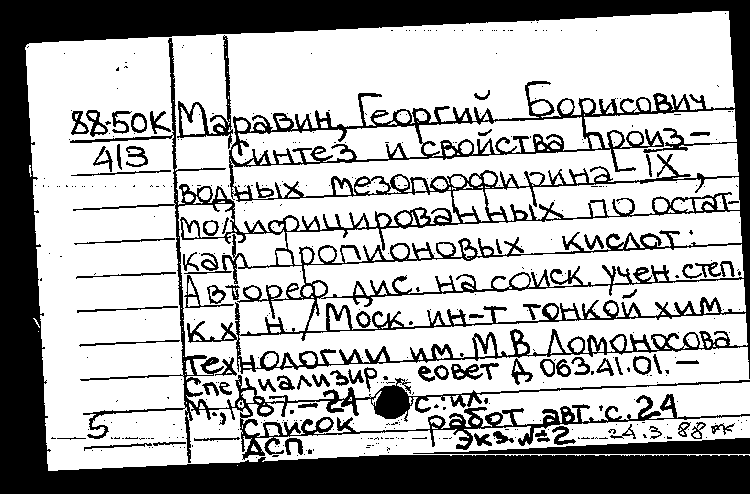 88-50К Маравин, Георгий Борисович
413 Синтез и свойства произ-
водных мезопорфирина-IX,
модифицированных по остат-
кам пропионовых кислот:
Автореф. дис. на соиск. учен. степ.
к.х.н. / Моск. ин-т тонкой хим.
технологии им. М.В. Ломоносова
Специализир. совет Д 063.41.01. —
М., 1987. — 24 с.: ил.
5 Список работ авт.: с. 24
ДСП. Экз. №2 24.3.88